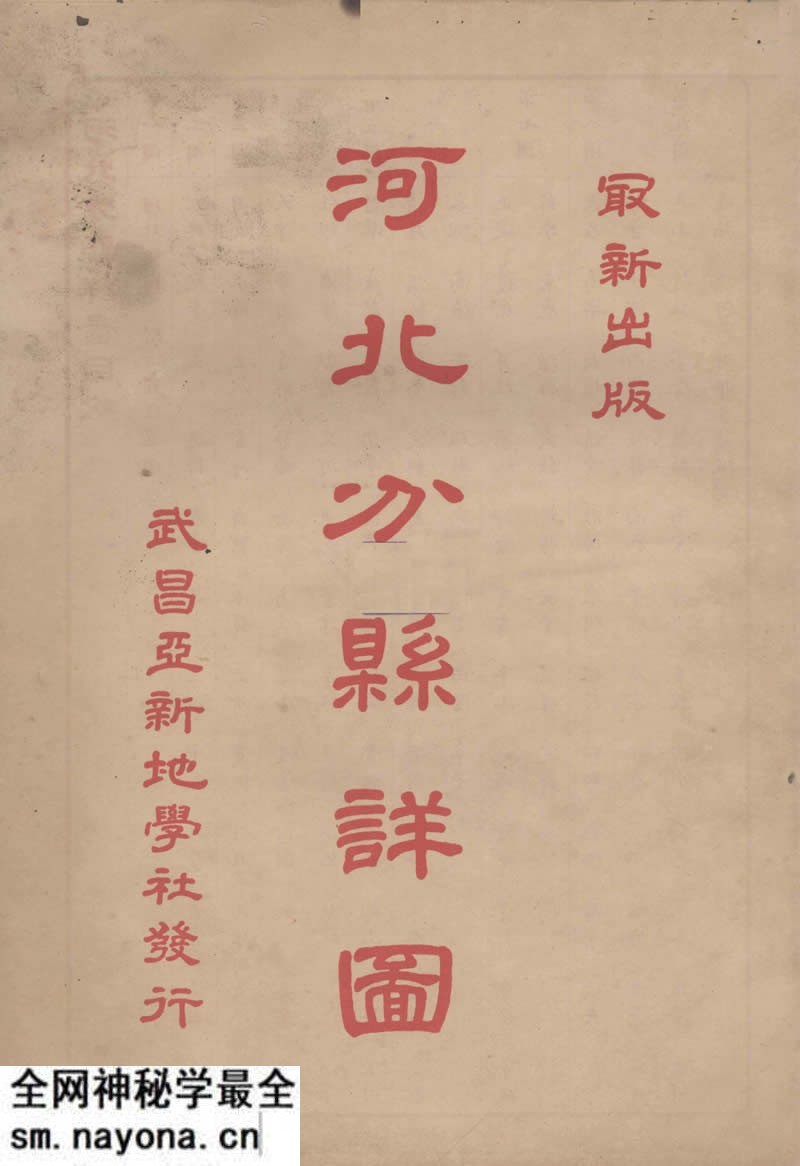 最新出版
河北分縣詳圖
武昌亞新地學社發行
全网神秘学最全
sm.nayona.cn